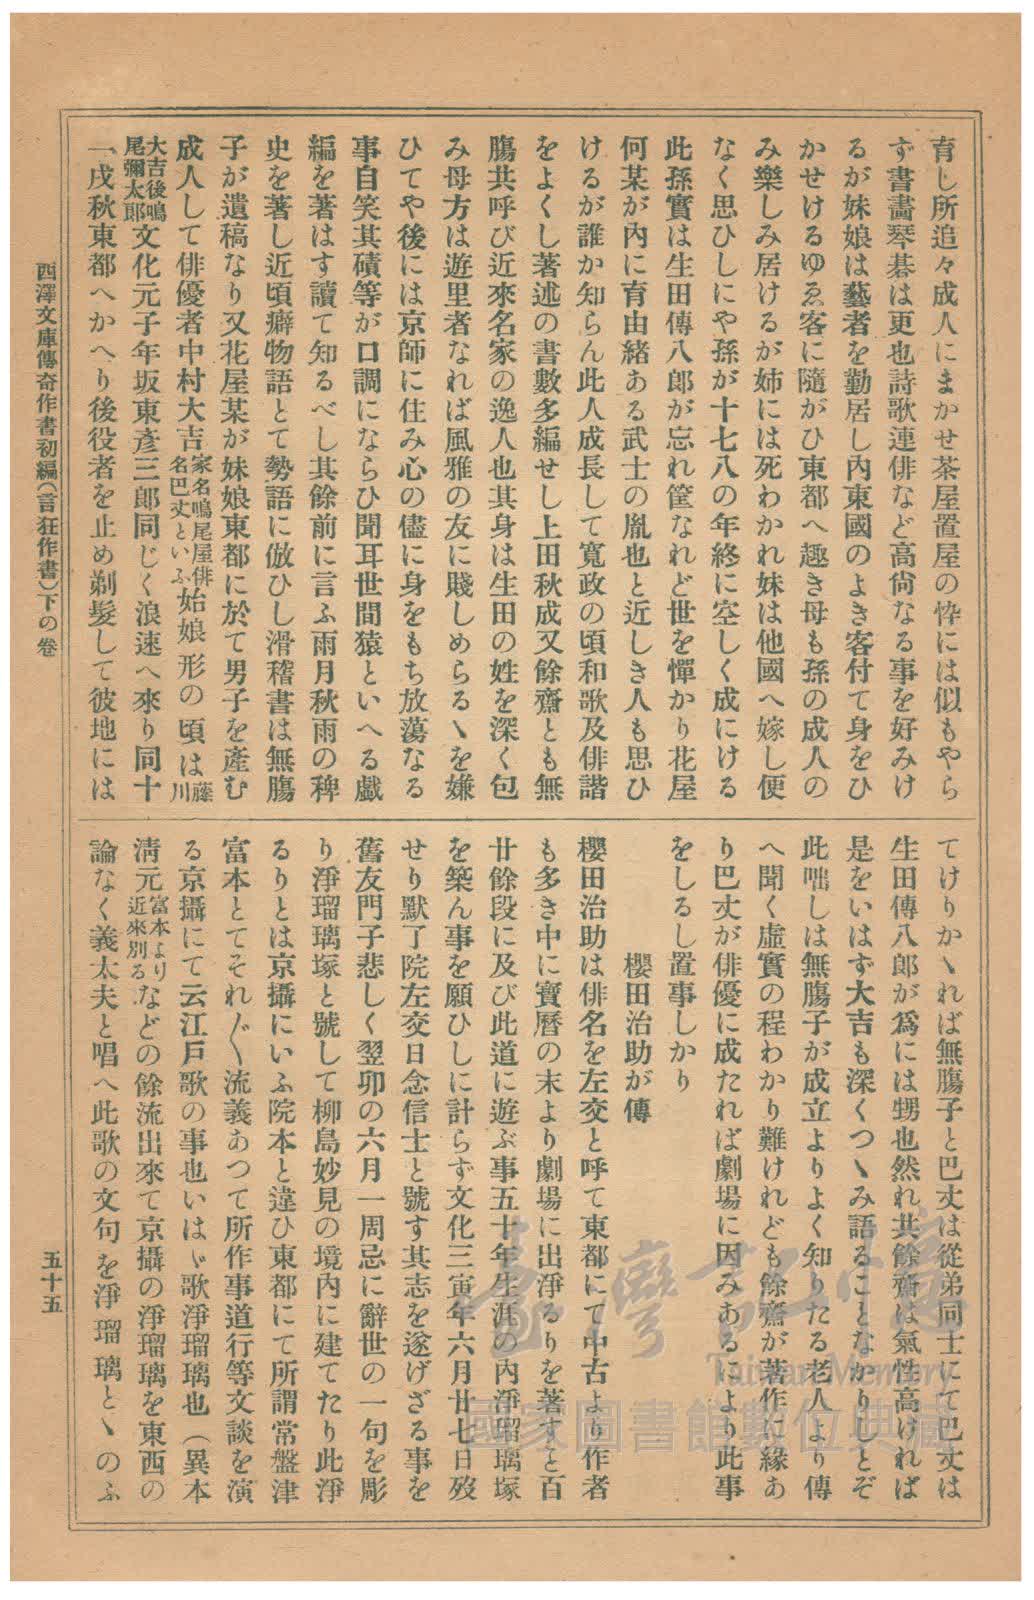 育し所追々成人にまかせ茶屋置屋の忰には似もやら
ず書畵琴碁は更也詩歌連俳など高尙なる事を好みけ
るが妹娘は藝者を勤居し內東國のよき客付て身をひ
かせけるゆゑ客に隨がひ東都へ趣き母も孫の成人の
み樂しみ居けるが姉には死わかれ妹は他國へ嫁し便
なく思ひしにや孫が十七八の年終に空しく成にける
此孫實は生田傳八郞が忘れ筐なれど世を憚かり花屋
何某が內に育由緖ある武士の胤也と近しき人も思ひ
けるが誰か知らん此人成長して寬政の頃和歌及俳諧
をよくし著述の書數多編せし上田秋成又餘齋とも無
膓共呼び近來名家の逸人也其身は生田の姓を深く包
み母方は遊里者なれば風雅の友に賤しめらるヽを嫌
ひてや後には京師に住み心の儘に身をもち放蕩なる
事自笑其磧等が口調にならひ聞耳世間猿といへる戯
編を著はす讀て知るべし其餘前に言ふ雨月秋雨の稗
史を著し近頃癖物語とて勢語に倣ひし滑稽書は無膓
子が遺稿なり又花屋某が妹娘東都に於て男子を產む
成人して俳優者中村大吉家名鳴尾屋俳名巴丈といふ始娘形の頃は藤川
大吉後鳴尾彌太郞文化元子年坂東彥三郞同じく浪速へ來り同十
一戌秋東都へかへり後役者を止め剃髮して彼地には
てけりかヽれば無膓子と巴丈は從弟同士にて巴丈は
生田傳八郞が爲には甥也然れ共餘齋は氣性高ければ
是をいはず大吉も深くつヽみ語ることなかりしとぞ
此咄しは無膓子が成立よりよく知りたる老人より傳
へ聞く虛實の程わかり難けれども餘齋が著作に緣あ
り巴丈が俳優に成たれば劇場に因みあるにより此事
をしるし置事しかり
櫻田治助が傳
櫻田治助は俳名を左交と呼て東都にて中古より作者
も多き中に寶曆の末より劇場に出淨るりを著すと百
廿餘段に及び此道に遊ぶ事五十年生涯の內淨瑠璃塚
を築ん事を願ひしに計らず文化三寅年六月廿七日歿
せり默了院左交日念信士と號す其志を遂げざる事を
舊友門子悲しく翌卯の六月一周忌に辭世の一句を彫
り淨瑠璃塚と號して柳島妙見の境內に建てたり此淨
るりとは京攝にいふ院本と違ひ東都にて所謂常盤津
富本とてそれ〲流義あつて所作事道行等文談を演
る京攝にて云江戶歌の事也いはゞ歌淨瑠璃也(異本
淸元富本より近來別るなどの餘流出來て京攝の淨瑠璃を東西の
論なく義太夫と唱へ此歌の文句を淨瑠璃とヽのふ
西澤文庫傳奇作書初編(言狂作書)下の卷
五十五
臺灣記憶
Taiwan Memory
國家圖書館數位典藏